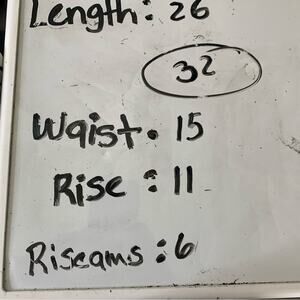 Length: 26
32
Waist. 15
Rise: 11
Riseams: 6